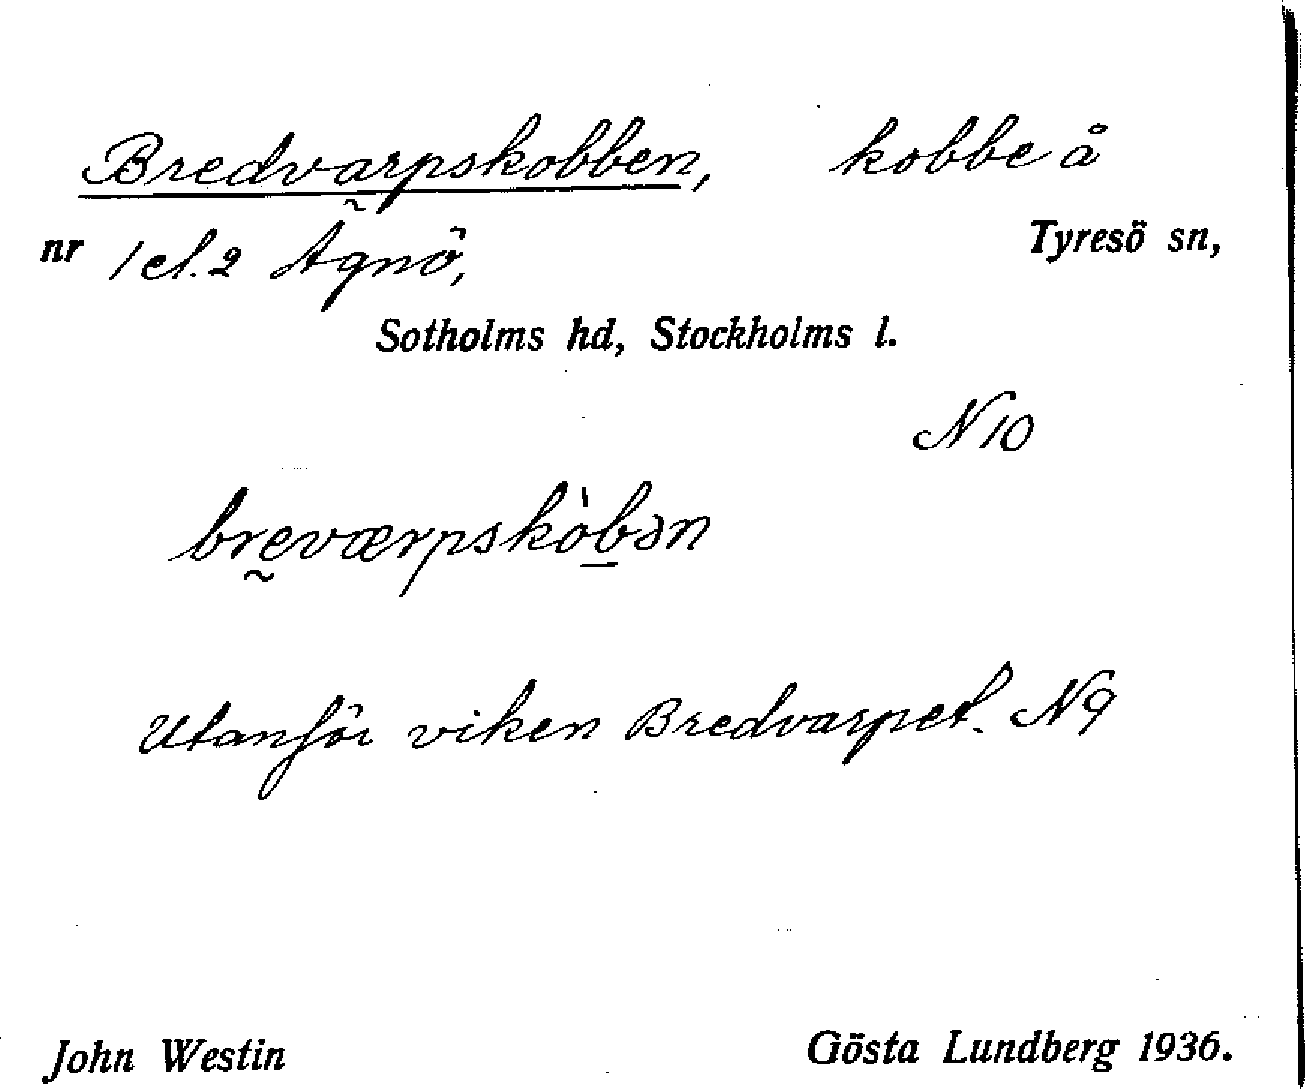 Bredvarpskobben, kobbe å
nr 1 el. 2 Ägnö, Tyresö sn,
Sotholms hd, Stockholms l.
N 10
breværpskòbən
Utanför viken Bredvarpet. N9
John Westin Gösta Lundberg 1936.